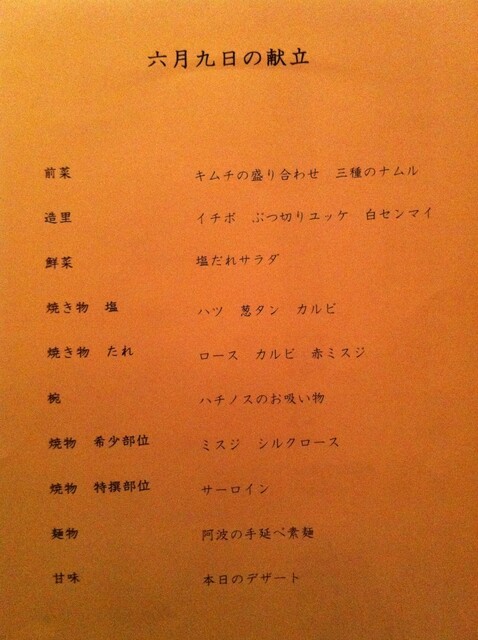 六月九日の献立
前菜 キムチの盛り合わせ 三種のナムル
造里 イチボ ぶつ切りユッケ 白センマイ
鮮菜 塩だれサラダ
焼き物 塩 ハツ 葱タン カルビ
焼き物 たれ ロース カルビ 赤ミスジ
椀 ハチノスのお吸い物
焼物 希少部位 ミスジ シルクロース
焼物 特撰部位 サーロイン
麺物 阿波の手延べ素麺
甘味 本日のデザート